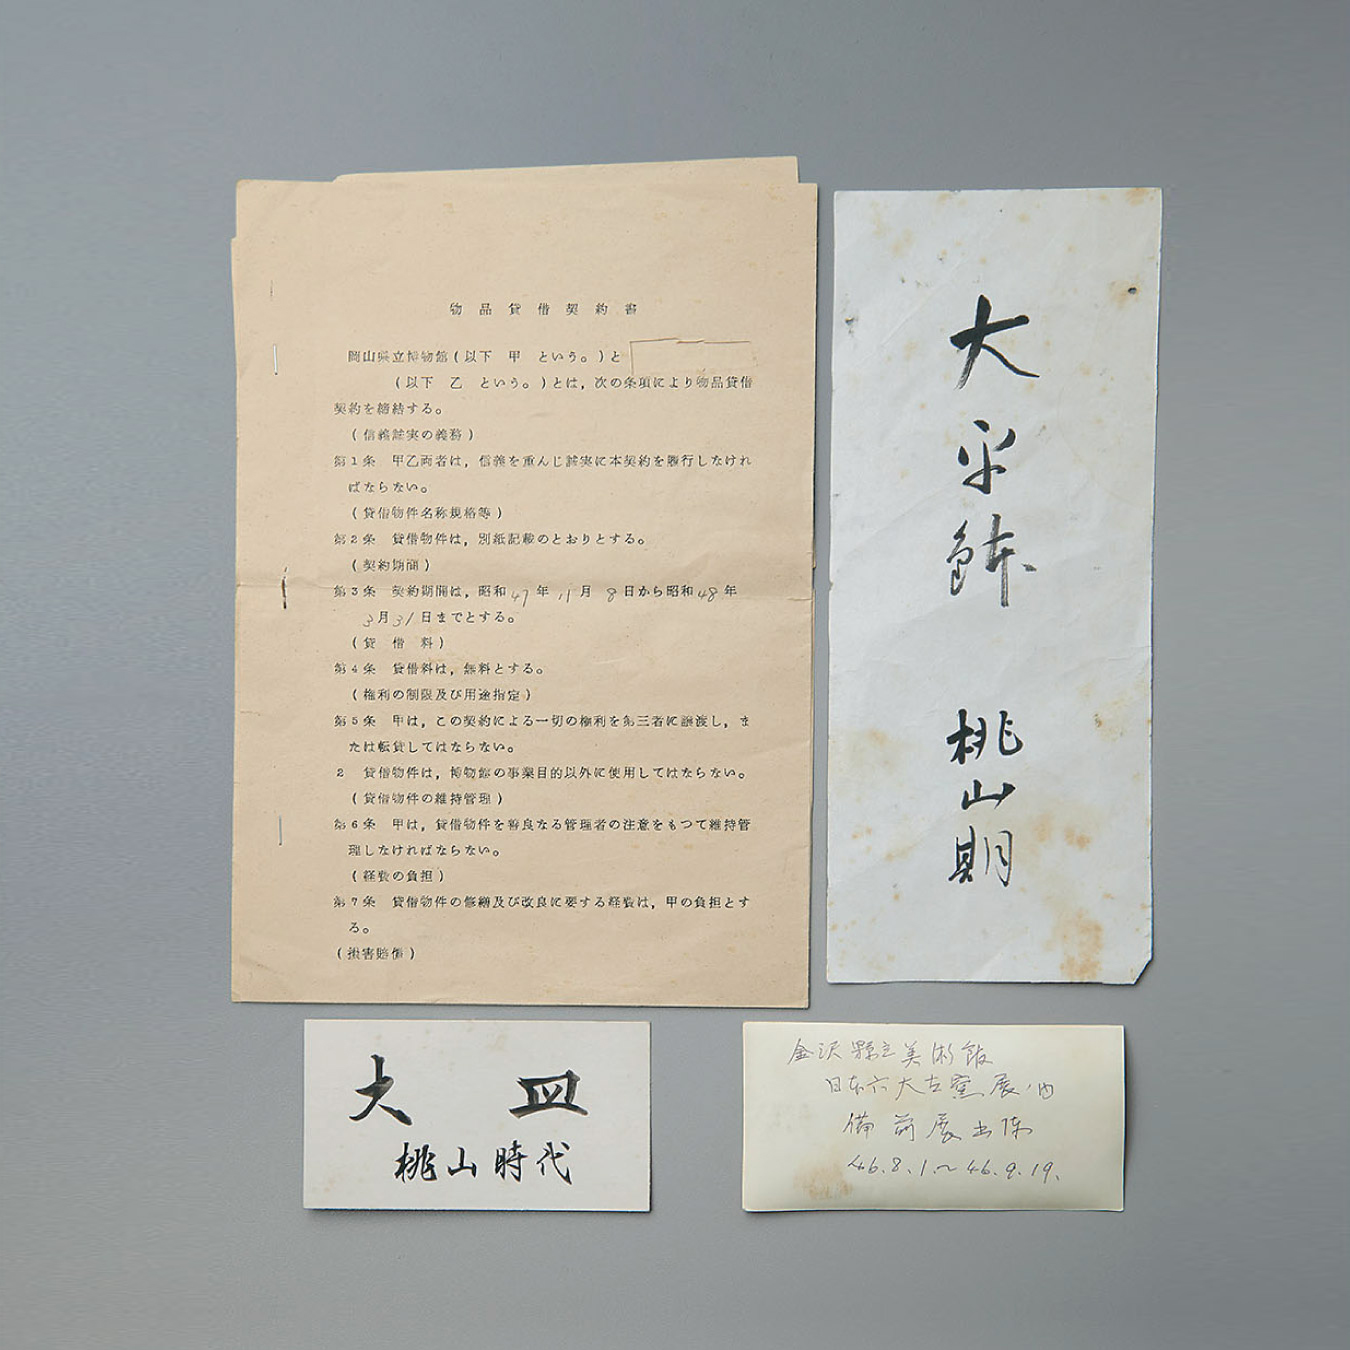 物品貸借契約書
岡山県立博物館(以下 甲 という。)と
(以下 乙 という。)とは,次の条項により物品貸借
契約を締結する。
(信義誠実の義務)
第1条 甲乙両者は,信義を重んじ誠実に本契約を履行しなけれ
ばならない。
(貸借物件名称規格等)
第2条 貸借物件は,別紙記載のとおりとする。
(契約期間)
第3条 契約期間は,昭和47年11月8日から昭和48年
3月31日までとする。
(貸借料)
第4条 貸借料は,無料とする。
(権利の制限及び用途指定)
第5条 甲は,この契約による一切の権利を第三者に譲渡し,ま
たは転貸してはならない。
2 貸借物件は,博物館の事業目的以外に使用してはならない。
(貸借物件の維持管理)
第6条 甲は,貸借物件を善良なる管理者の注意をもつて維持管
理しなければならない。
(経費の負担)
第7条 貸借物件の修繕及び改良に要する経費は,甲の負担とす
る。
(損害賠償)
大平鉢 桃山期
大皿
桃山時代
金沢縣立美術館
日本六大古窯展ノ内
備前展出陳
46.8.1.~46.9.19.